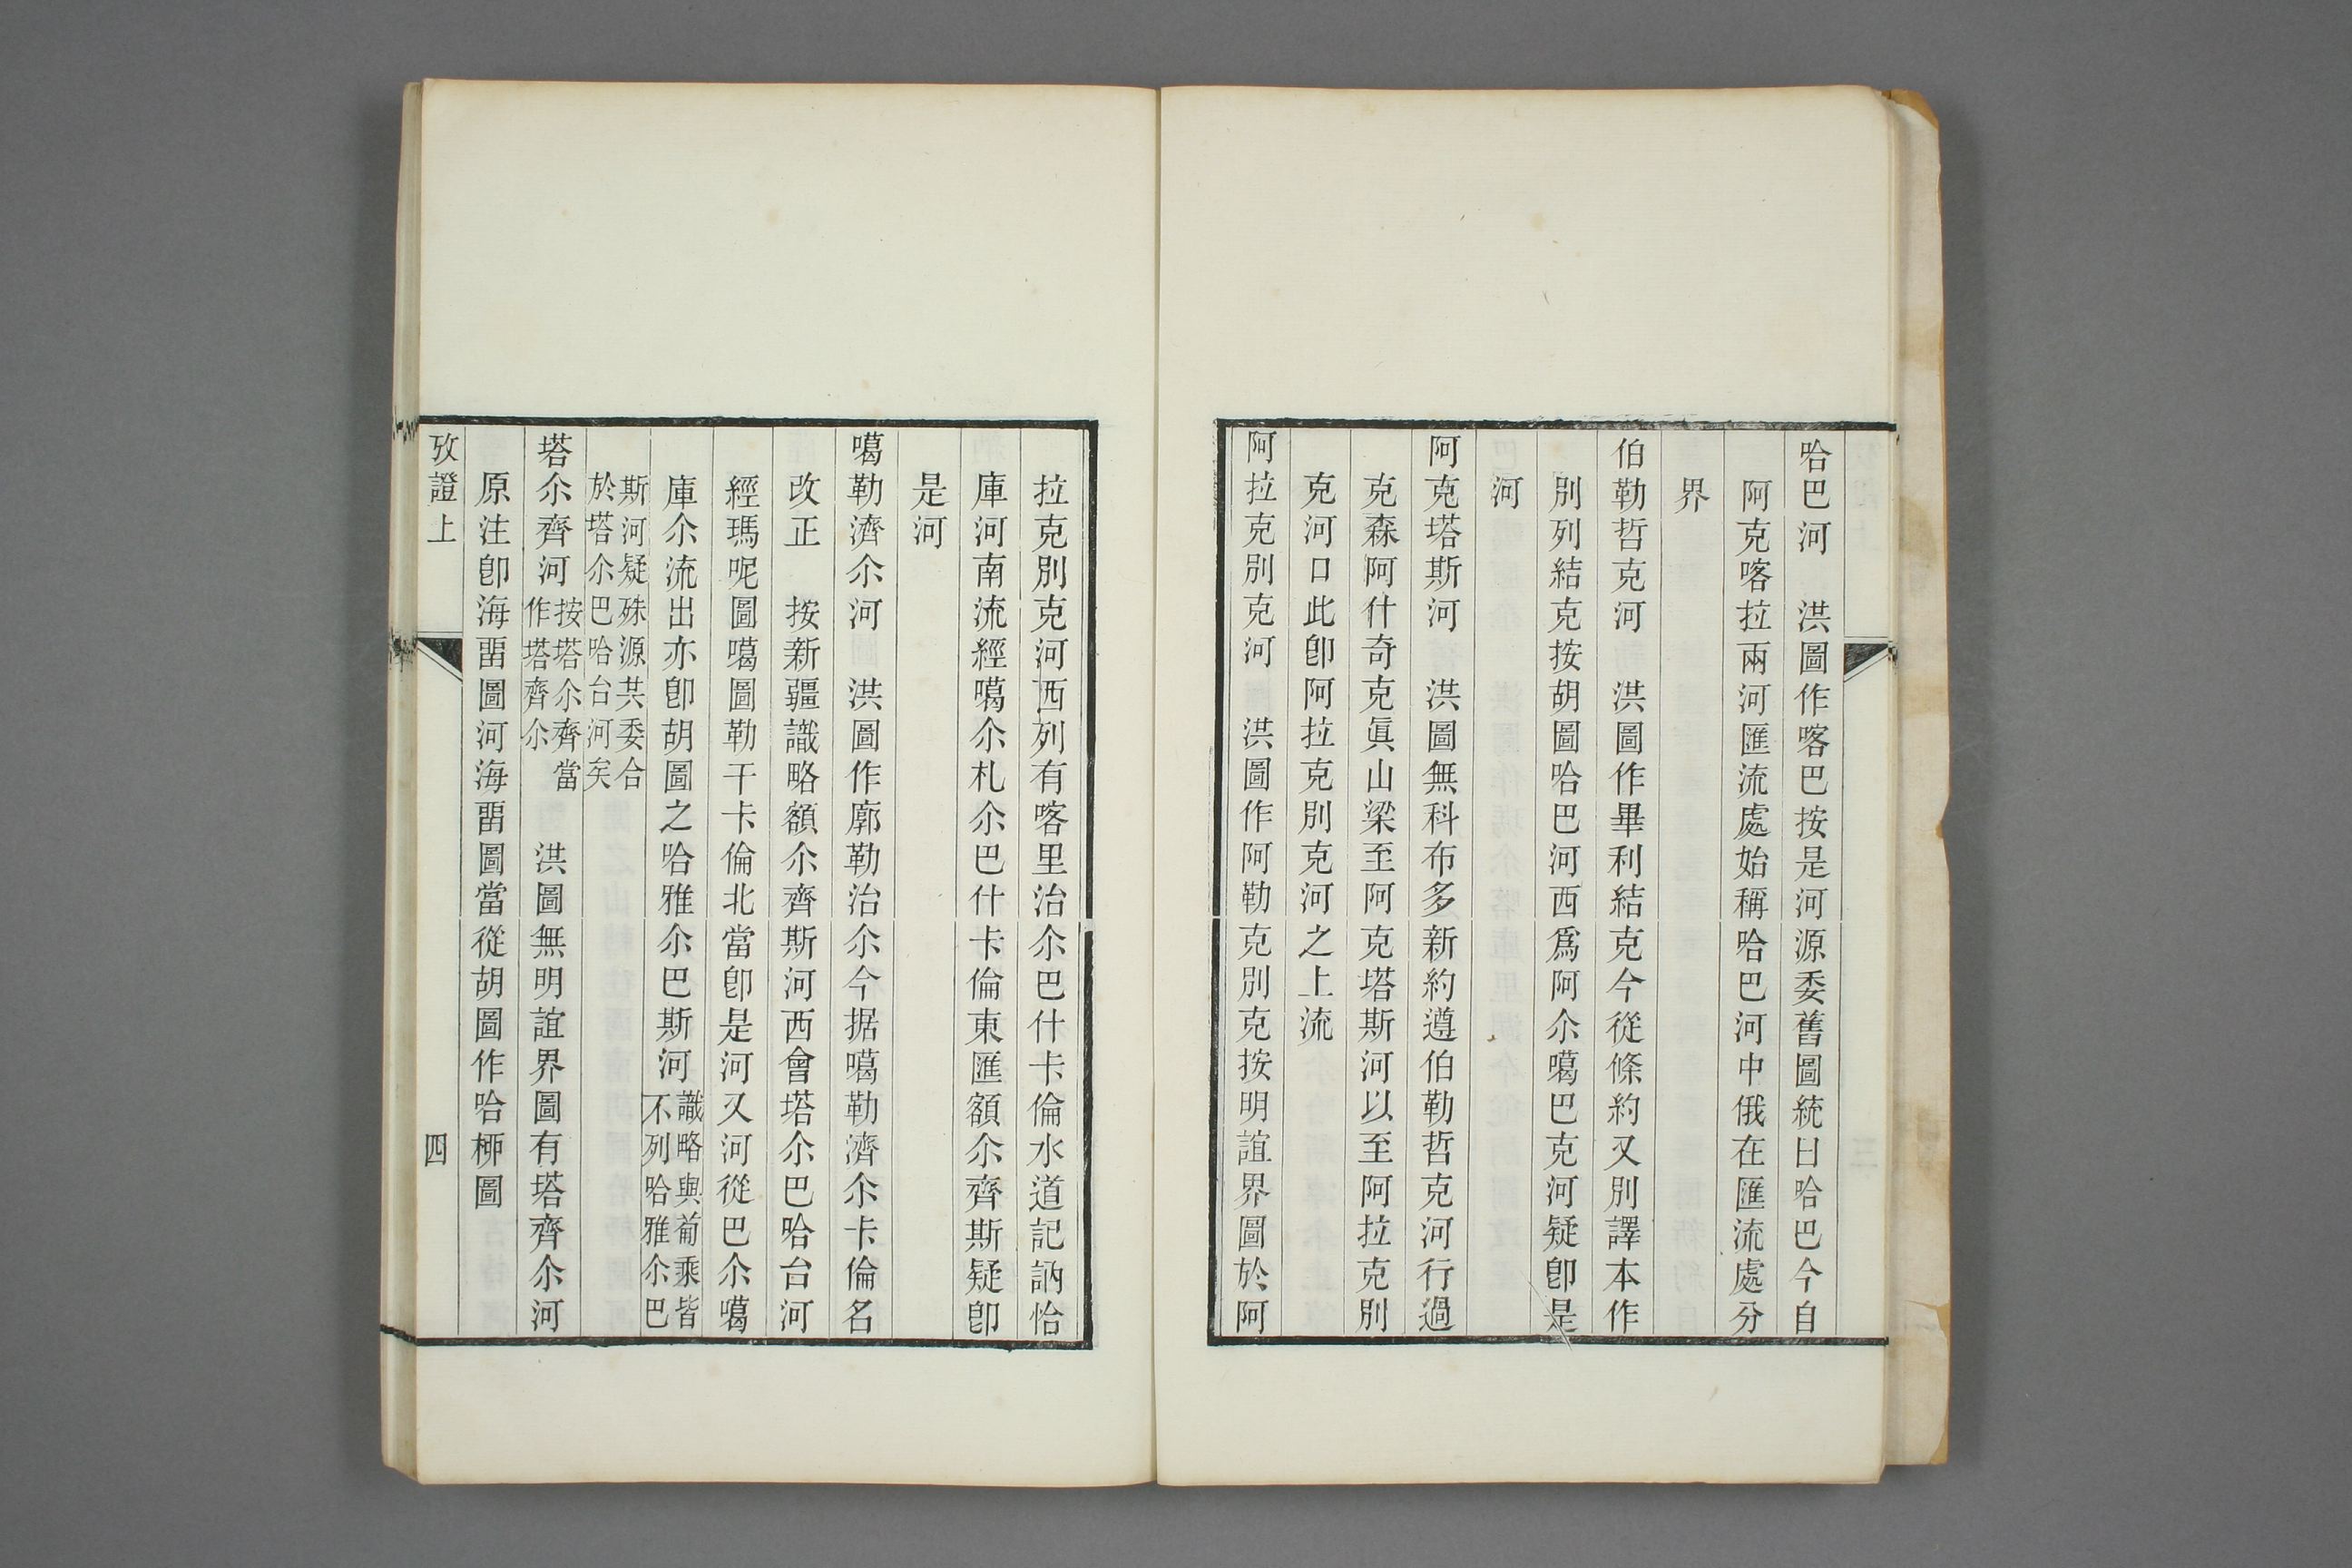 哈巴河　洪圖作喀巴按是河源委舊圖統曰哈巴今自
阿克喀拉兩河匯流處始稱哈巴河中俄在匯流處分
界
伯勒哲克河　洪圖作畢利結克今從條約又別譯本作
別列結克按胡圖哈巴河西爲阿尒噶巴克河疑卽是
河
阿克塔斯河　洪圖無科布多新約遵伯勒哲克河行過
克森阿什奇克眞山梁至阿克塔斯河以至阿拉克別
克河口此卽阿拉克別克河之上流
阿拉克別克河　洪圖作阿勒克別克按明誼界圖於阿
拉克別克河西列有喀里治尒巴什卡倫水道記訥恰
庫河南流經噶尒札尒巴什卡倫東匯額尒齊斯疑卽
是河
噶勒濟尒河　洪圖作廓勒治尒今据噶勒濟尒卡倫名
改正　按新疆識略額尒齊斯河西會塔尒巴哈台河
經瑪呢圖噶圖勒干卡倫北當卽是河又河從巴尒噶
庫尒流出亦卽胡圖之哈雅尒巴斯河識略與葡乘皆
不列哈雅尒巴
斯河疑殊源其委合
於塔尒巴哈台河矣
塔尒齊河按塔尒齊當
作塔齊尒　洪圖無明誼界圖有塔齊尒河
原注卽海畱圖河海畱圖當從胡圖作哈栁圖
攷證上
四